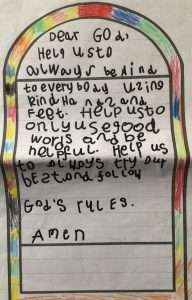 Dear God,
Help us to
always be kind
to everybody using
kind hands and
Feet. Help us to
only use good
words and be
helpful. Help us
to always try our
best and follow
God's rules.
Amen